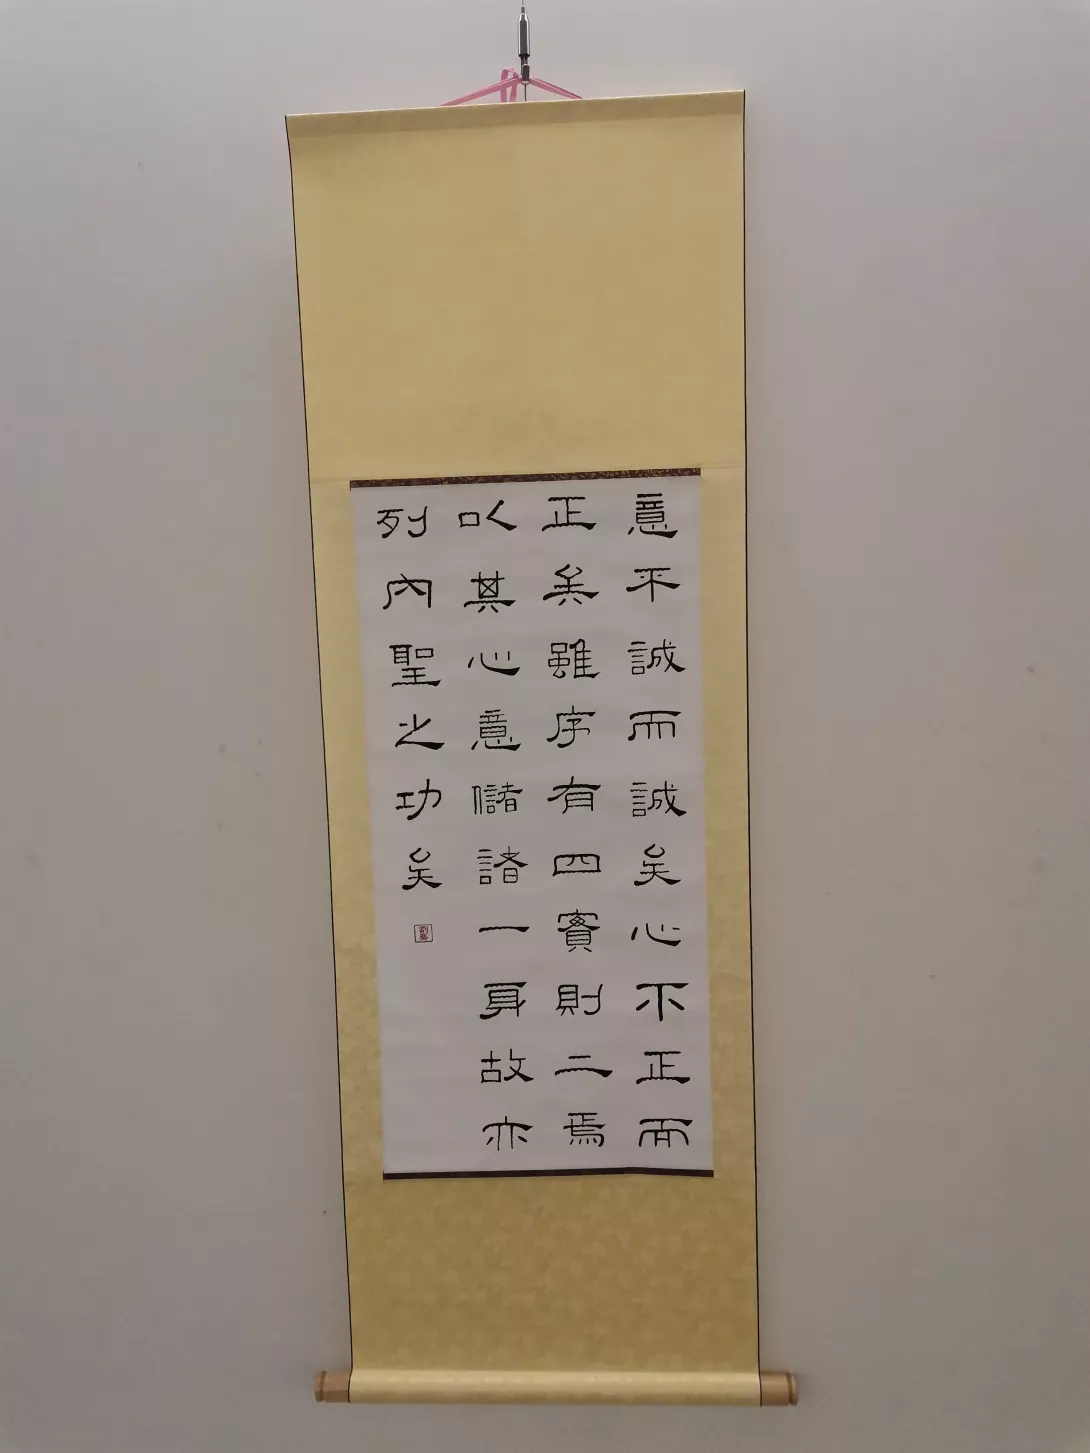 意不誠而誠矣心不正而
正矣雖序有四實則二焉
以其心意儲諸一身故亦
列內聖之功矣